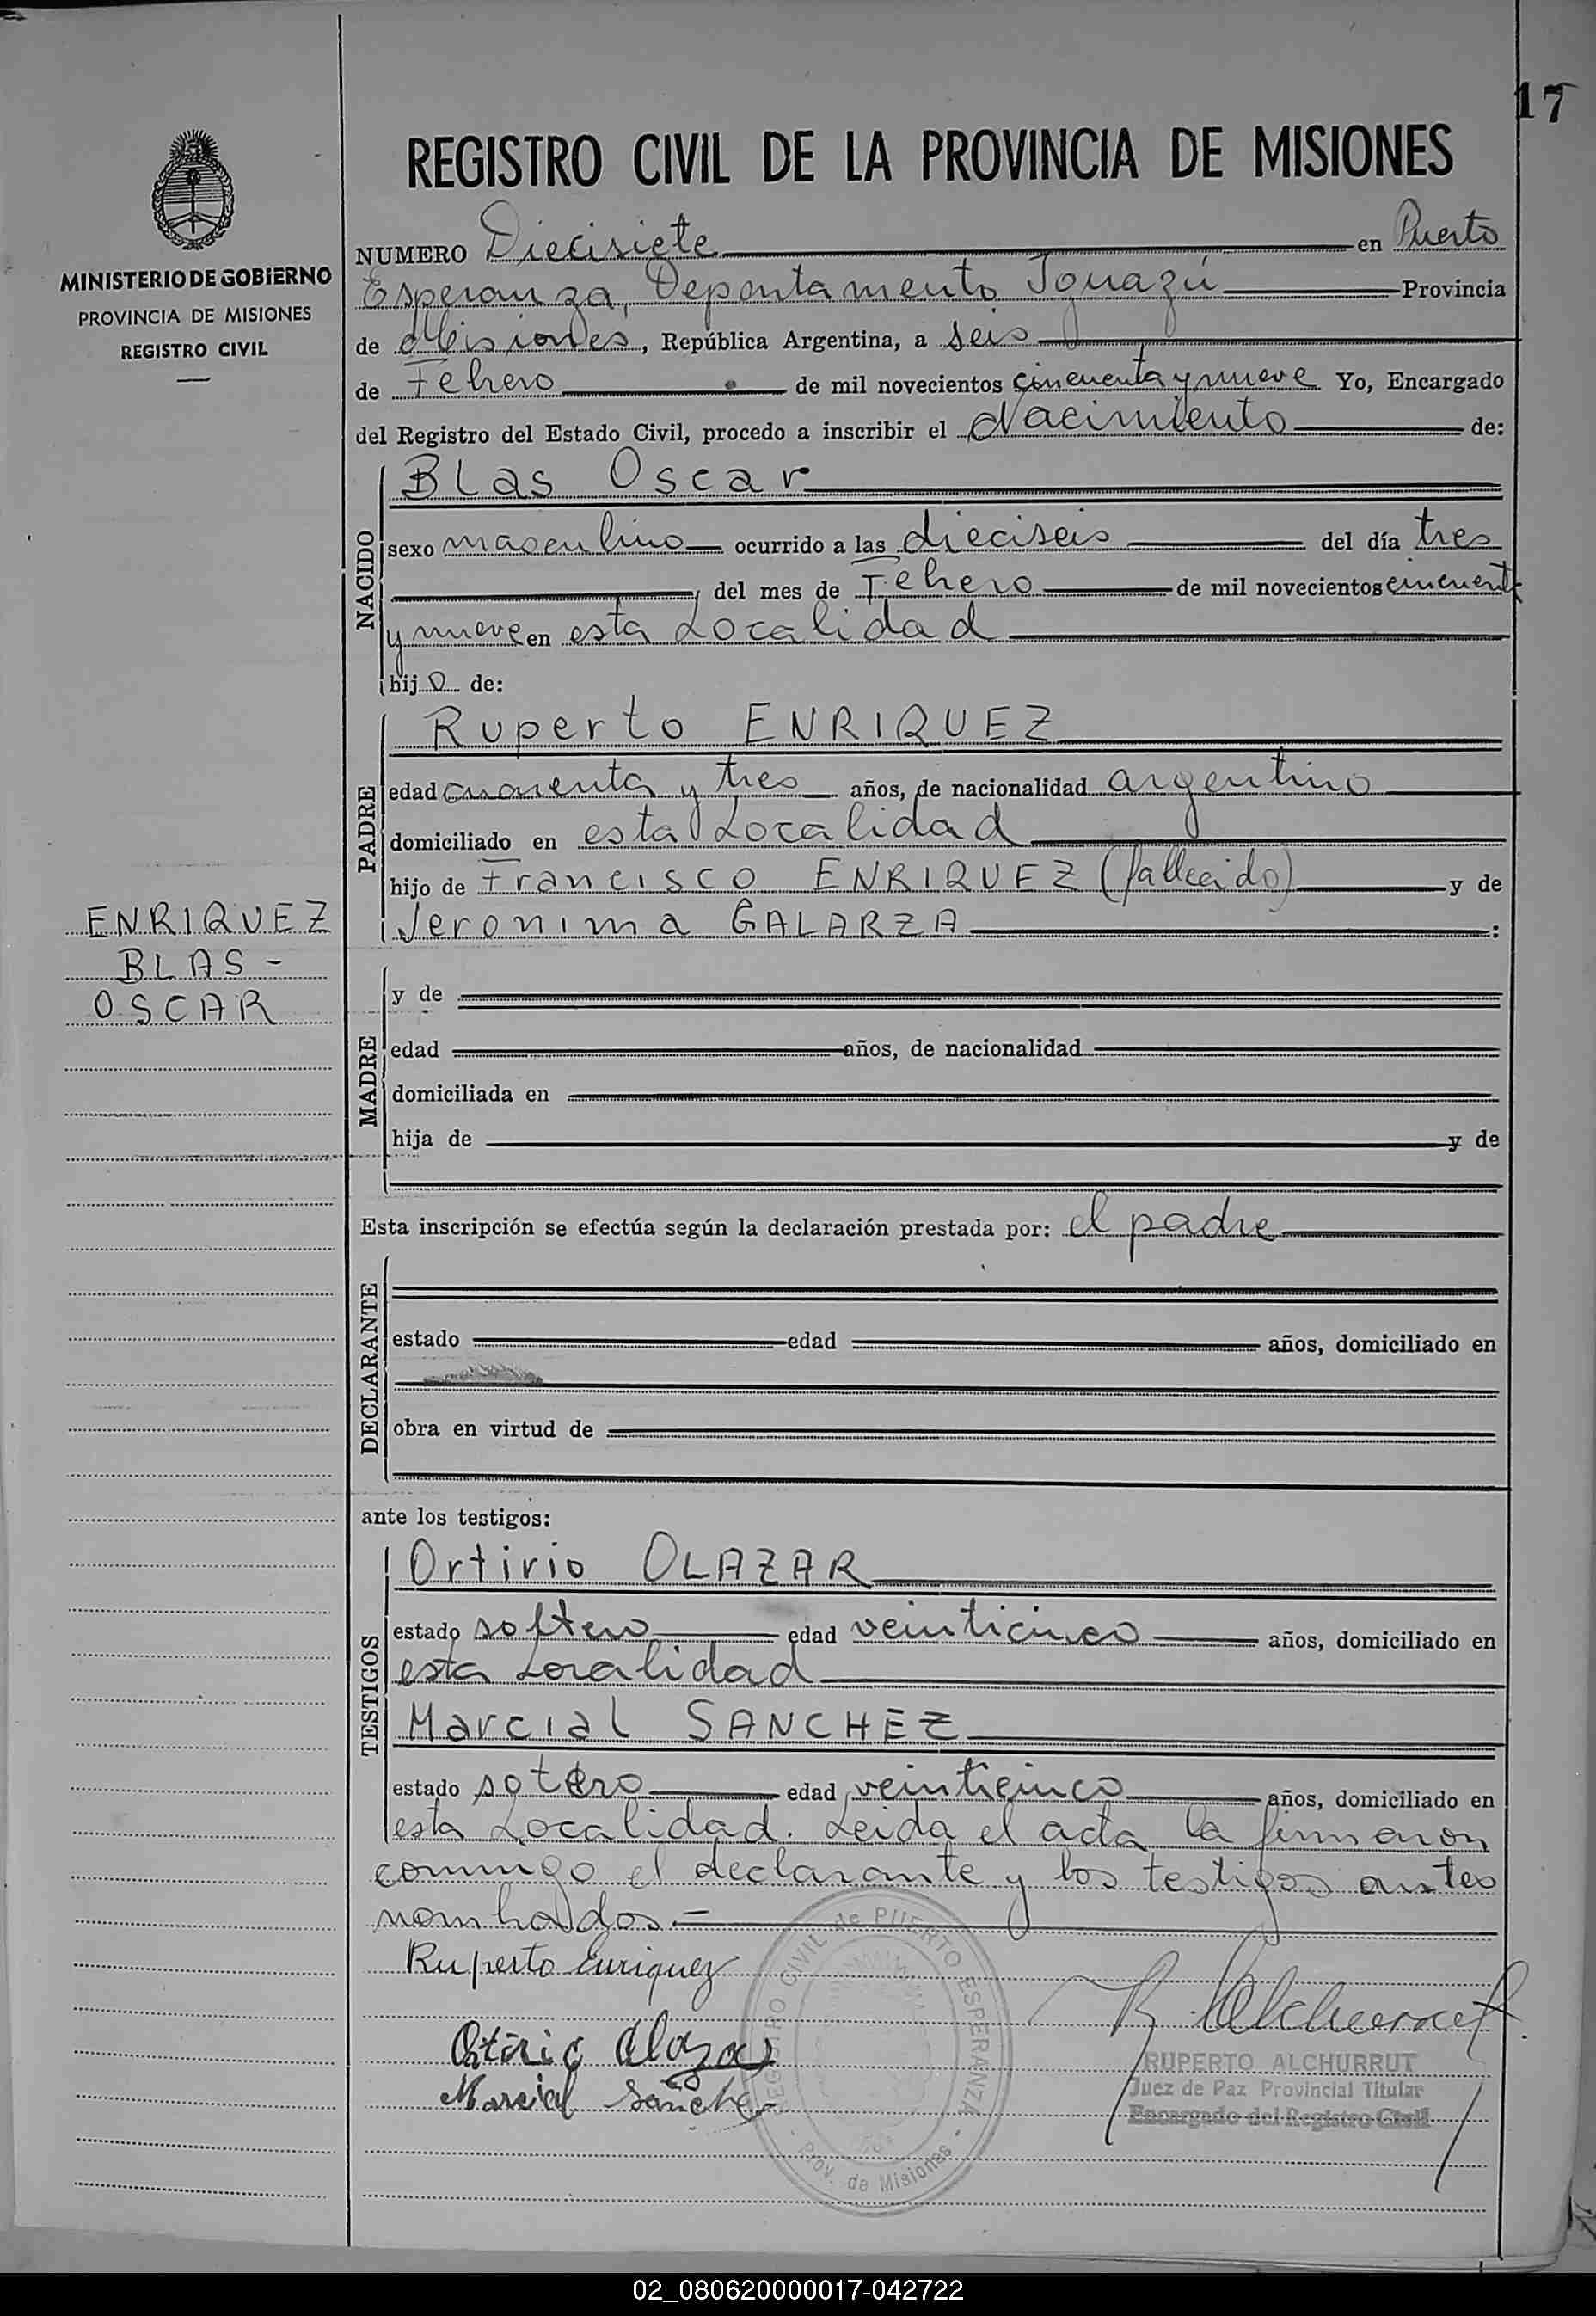 17
REGISTRO CIVIL DE LA PROVINCIA DE MISIONES
MINISTERIO DE GOBIERNO
PROVINCIA DE MISIONES
REGISTRO CIVIL
NUMERO Diecisiete en Puerto
Esperanza, Departamento Iguazú Provincia
de Misiones, República Argentina, a seis
de Febrero de mil novecientos cincuenta y nueve Yo, Encargado
del Registro del Estado Civil, procedo a inscribir el Nacimiento de:
NACIDO
Blas Oscar
sexo masculino ocurrido a las dieciseis del día tres
, del mes de Febrero de mil novecientos cincuent
y nueve en esta Localidad
hijo de:
PADRE
Ruperto ENRIQUEZ
edad cuarenta y tres años, de nacionalidad argentino
domiciliado en esta Localidad
hijo de Francisco ENRIQUEZ (fallecido) y de
Jeronima GALARZA :
ENRIQUEZ
BLAS -
OSCAR
MADRE
y de
edad años, de nacionalidad
domiciliada en
hija de y de
Esta inscripción se efectúa según la declaración prestada por: el padre
DECLARANTE
estado edad años, domiciliado en
obra en virtud de
ante los testigos:
TESTIGOS
Ortirio OLAZAR
estado soltero edad veinticinco años, domiciliado en
esta Localidad
Marcial SANCHEZ
estado sotero edad veinticinco años, domiciliado en
esta Localidad. Leida el acta la firmaron
conmigo el declarante y los testigos antes
nombrados.-
Ruperto Enriquez
R. Alchurrut
Ortirio Olazar
Marcial Sanchez
REGISTRO CIVIL de PUERTO ESPERANZA
- Prov. de Misiones -
RUPERTO ALCHURRUT
Juez de Paz Provincial Titular
Encargado del Registro Civil
02_080620000017-042722